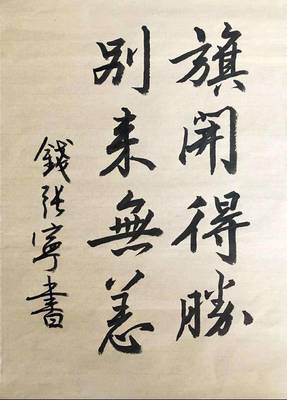 旗開得勝
別来無恙
錢張寧書